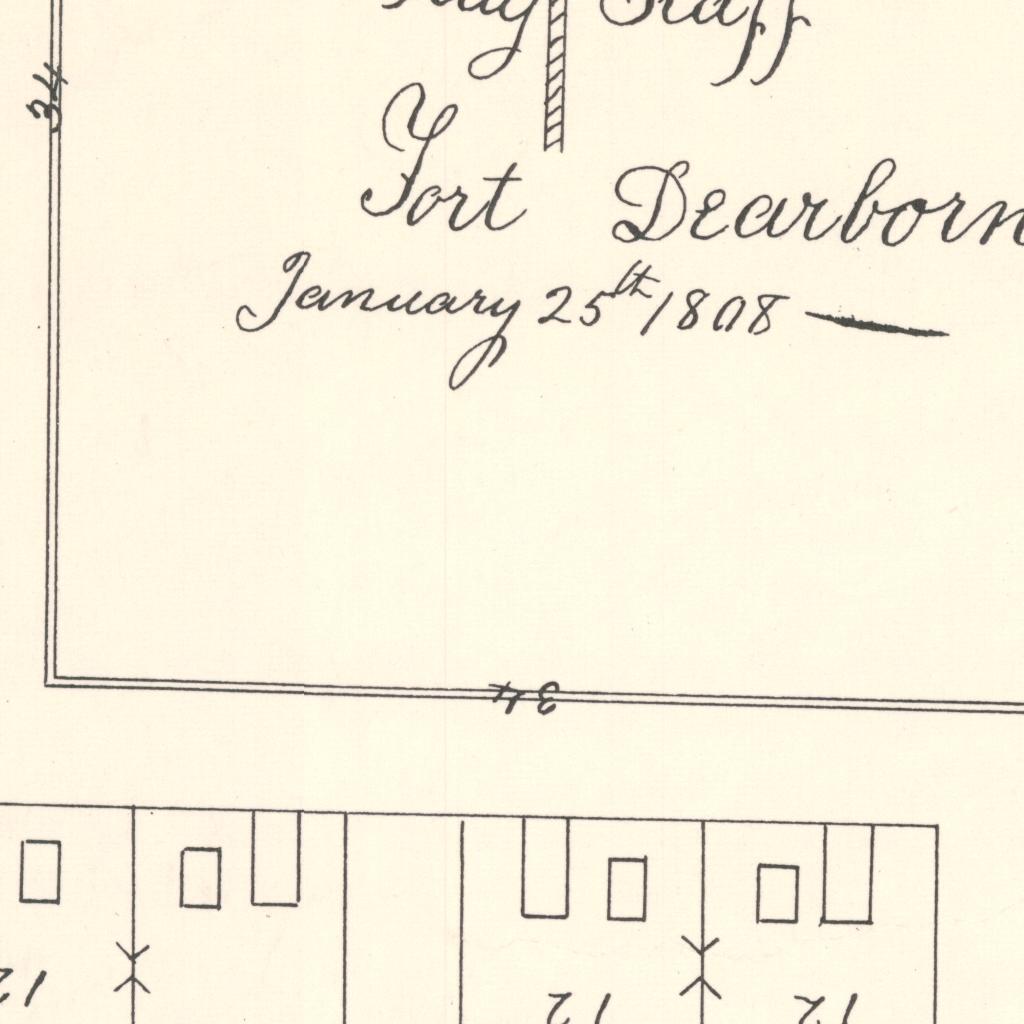 Flag Staff
Fort Dearborn
January 25th 1808
34
34
12
12
12